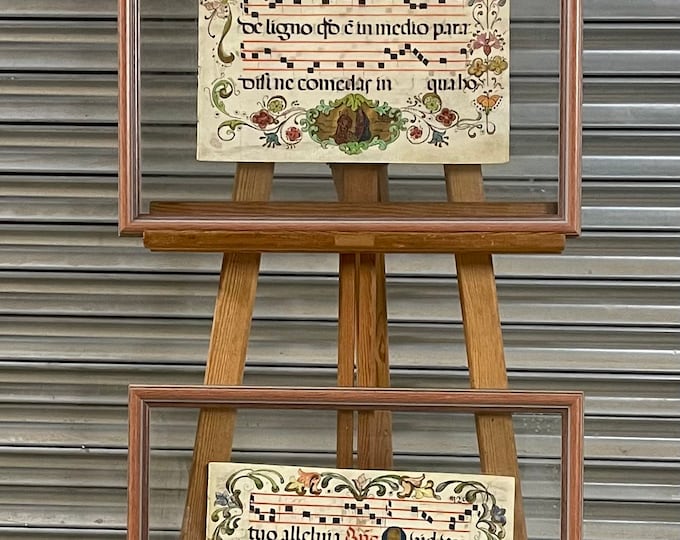 de ligno qđ ē in medio para
disi ne comedas in quaho
tuo alleluia